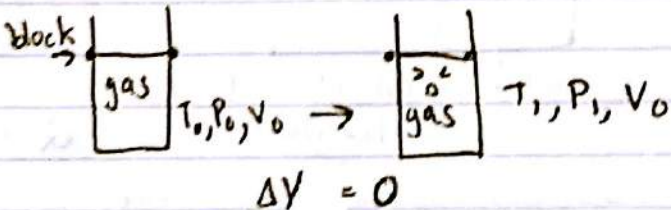 block
→
gas
T₀, P₀, V₀ →
gas
T₁, P₁, V₀
ΔV = 0